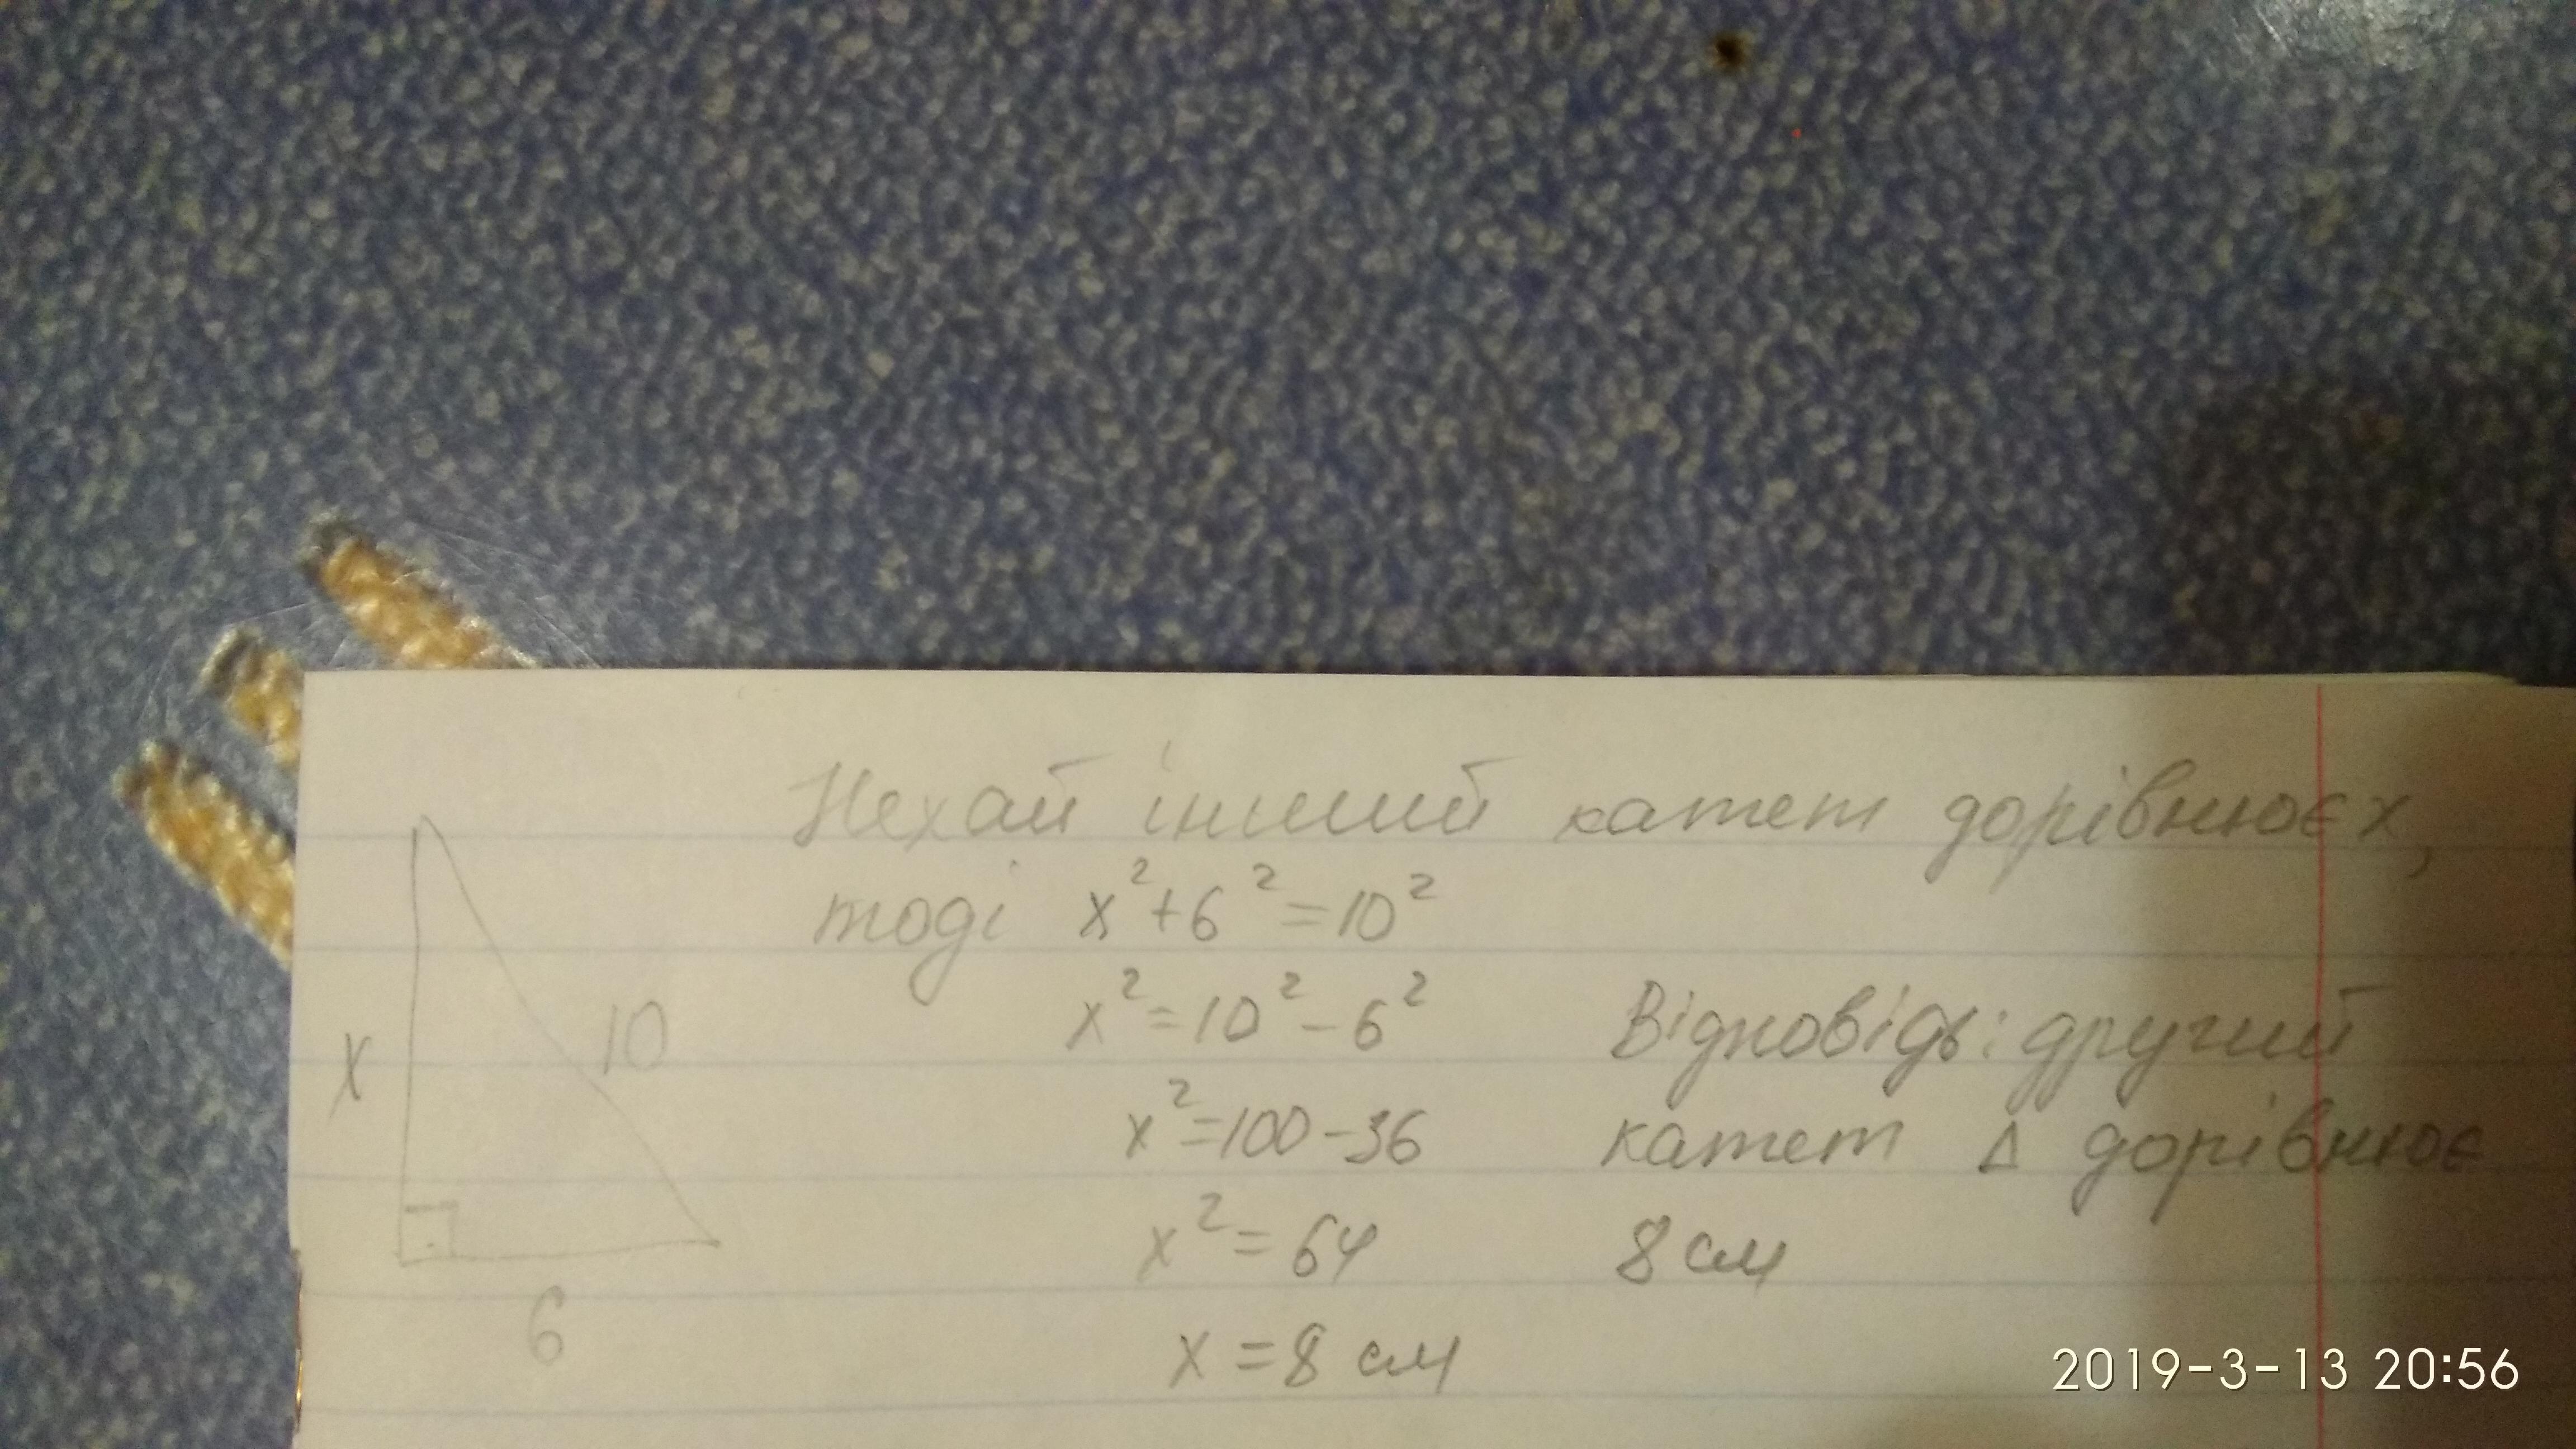 Нехай інший катет дорівнює x,
тоді x²+6²=10²
x²=10²-6²
x²=100-36
x²=64
x=8 см
Відповідь: другий
катет Δ дорівнює
8 см
x
10
6
2019-3-13 20:56